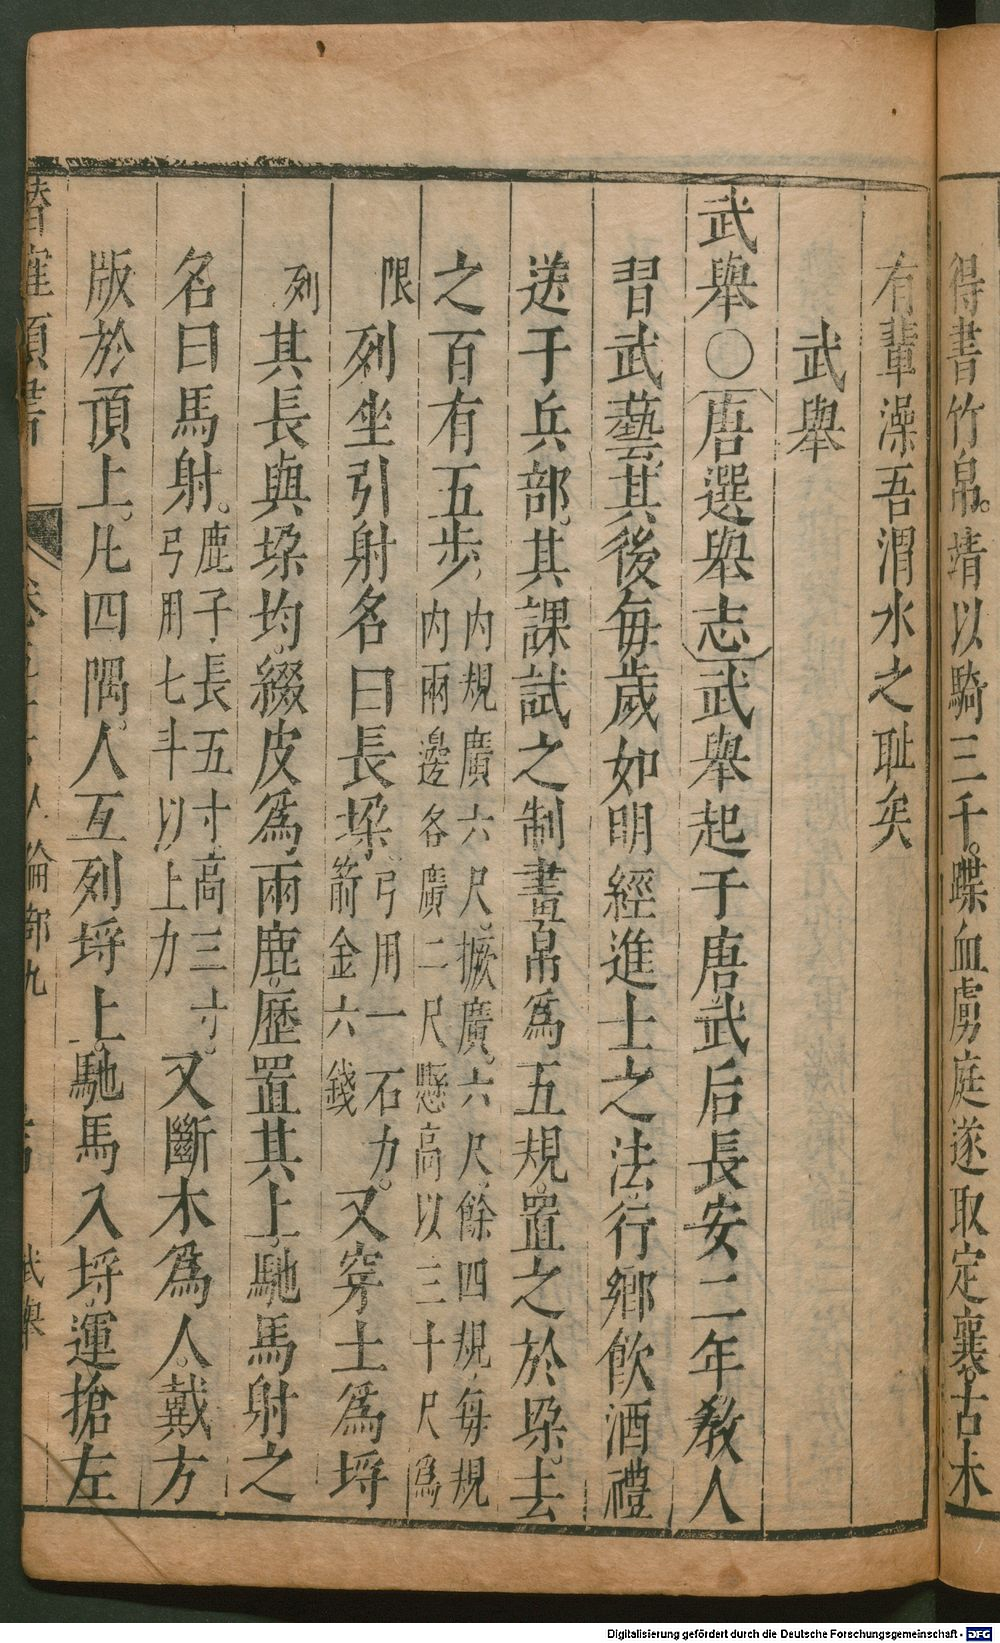 得書竹帛。靖以騎三千。蹀血虜庭遂取定襄。古未
有輩澡吾渭水之耻矣
武舉
武舉○唐選舉志武舉起于唐武后長安二年教人
習武藝其後每歲如明經進士之法行鄉飮酒禮
送于兵部。其課試之制畫帛爲五規。置之於垛。去
之百有五步，內規廣六尺。橛廣。六尺餘四規，每規
內兩邊各廣二尺懸高以三十尺爲
限
列坐引射名曰長垜，弓用一石力。
箭金六錢
又穿土爲埓
列
其長與垜均。綴皮爲兩鹿。歷置其上馳馬射之
名曰馬射。鹿子長五寸高三寸。
弓用七斗以上力
又斷木爲人。戴方
版於頂上。凡四隅。人互列埓上。馳馬入埓運搶左
潛確類書
人倫部九
武舉
Digitalisierung gefördert durch die Deutsche Forschungsgemeinschaft - DFG